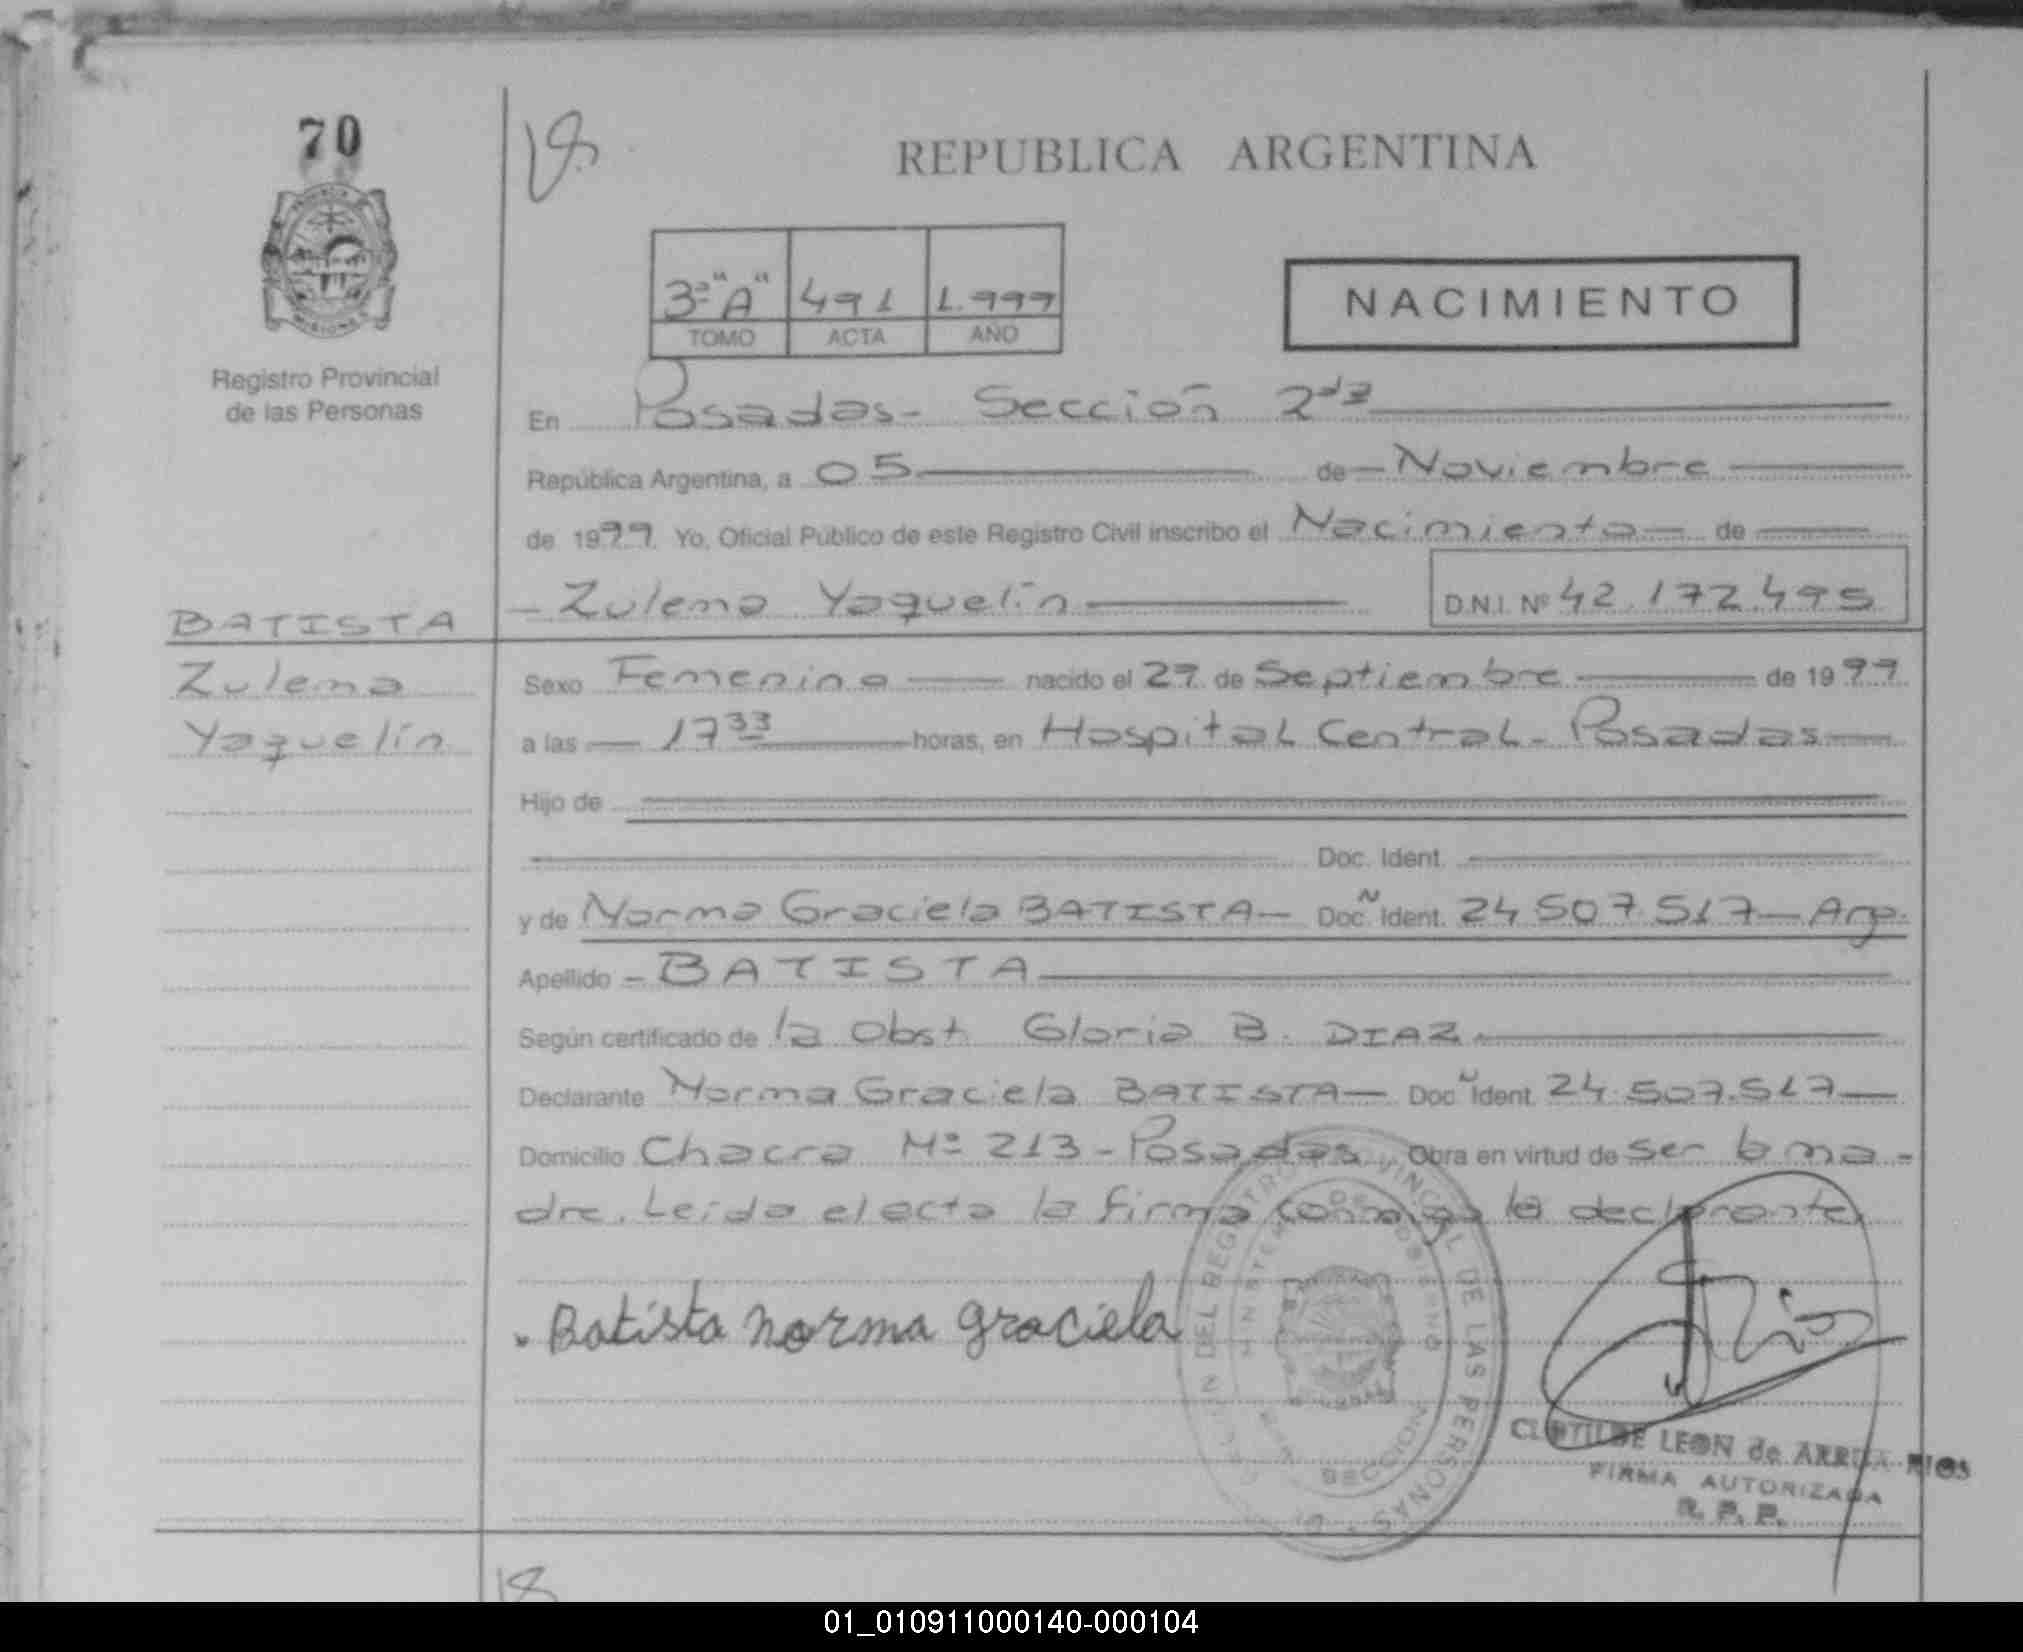 70
REPUBLICA ARGENTINA
3ª "A" 491 1.999
TOMO ACTA AÑO
NACIMIENTO
Registro Provincial
de las Personas
En Posadas - Sección 2da
República Argentina, a 05 de Noviembre
de 1999. Yo, Oficial Público de este Registro Civil inscribo el Nacimiento de
Zulema Yaquelín D.N.I. Nº 42.172.495
BATISTA
Zulema
Yaquelín
Sexo Femenino nacido el 27 de Septiembre de 1999
a las 17 33 horas, en Hospital Central - Posadas
Hijo de
Doc. Ident.
y de Norma Graciela BATISTA Doc. Ident. 24.507.517 - Arg.
Apellido - BATISTA
Según certificado de la Obst. Gloria B. DIAZ
Declarante Norma Graciela BATISTA Doc. Ident. 24.507.517
Domicilio Chacra Nº 213 - Posadas Obra en virtud de ser la ma-
dre. Leída el acta la firma conmigo la declarante
Batista norma graciela
REGISTRO PROVINCIAL DE LAS PERSONAS
MINISTERIO DE GOBIERNO
SECCION
CLOTILDE LEON de ARRUA RIOS
FIRMA AUTORIZADA
R. P. P.
01_010911000140-000104